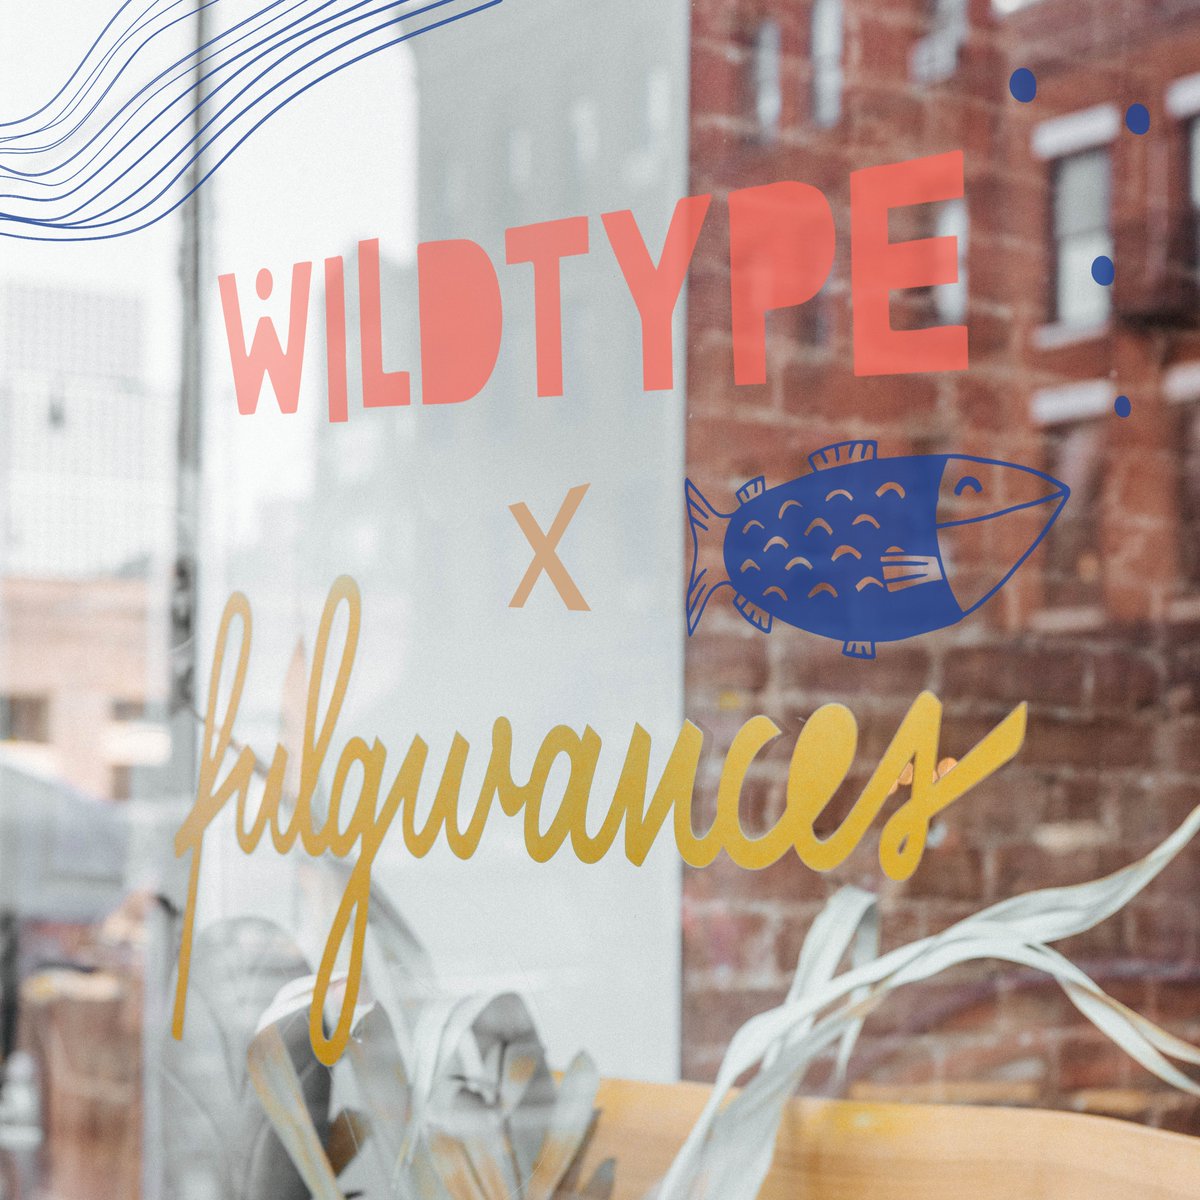 WILDTYPE
X
fulgurances